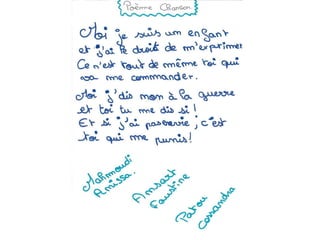 Poème Chanson
Moi je suis un enfant
et j'ai le droit de m'exprimer
Ce n'est tout de même toi qui
va me commander.
Moi j'dis non à la guerre
et toi tu me dis si !
Et si j'ai pas envie, c'est
toi qui me punis !
Mahmoudi
Anissa.
Ansart
Faustine
Patou
Cassandra